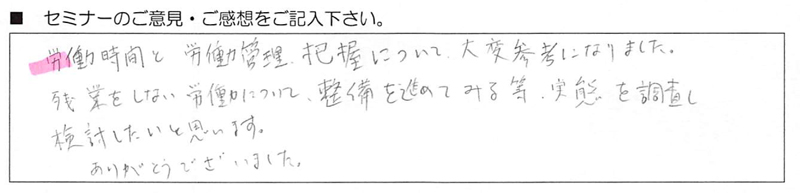 ■ セミナーのご意見・ご感想をご記入下さい。
労働時間と労働管理、把握について、大変参考になりました。
残業をしない労働について、整備を進めてみる等、実態を調査し
検討したいと思います。
ありがとうございました。